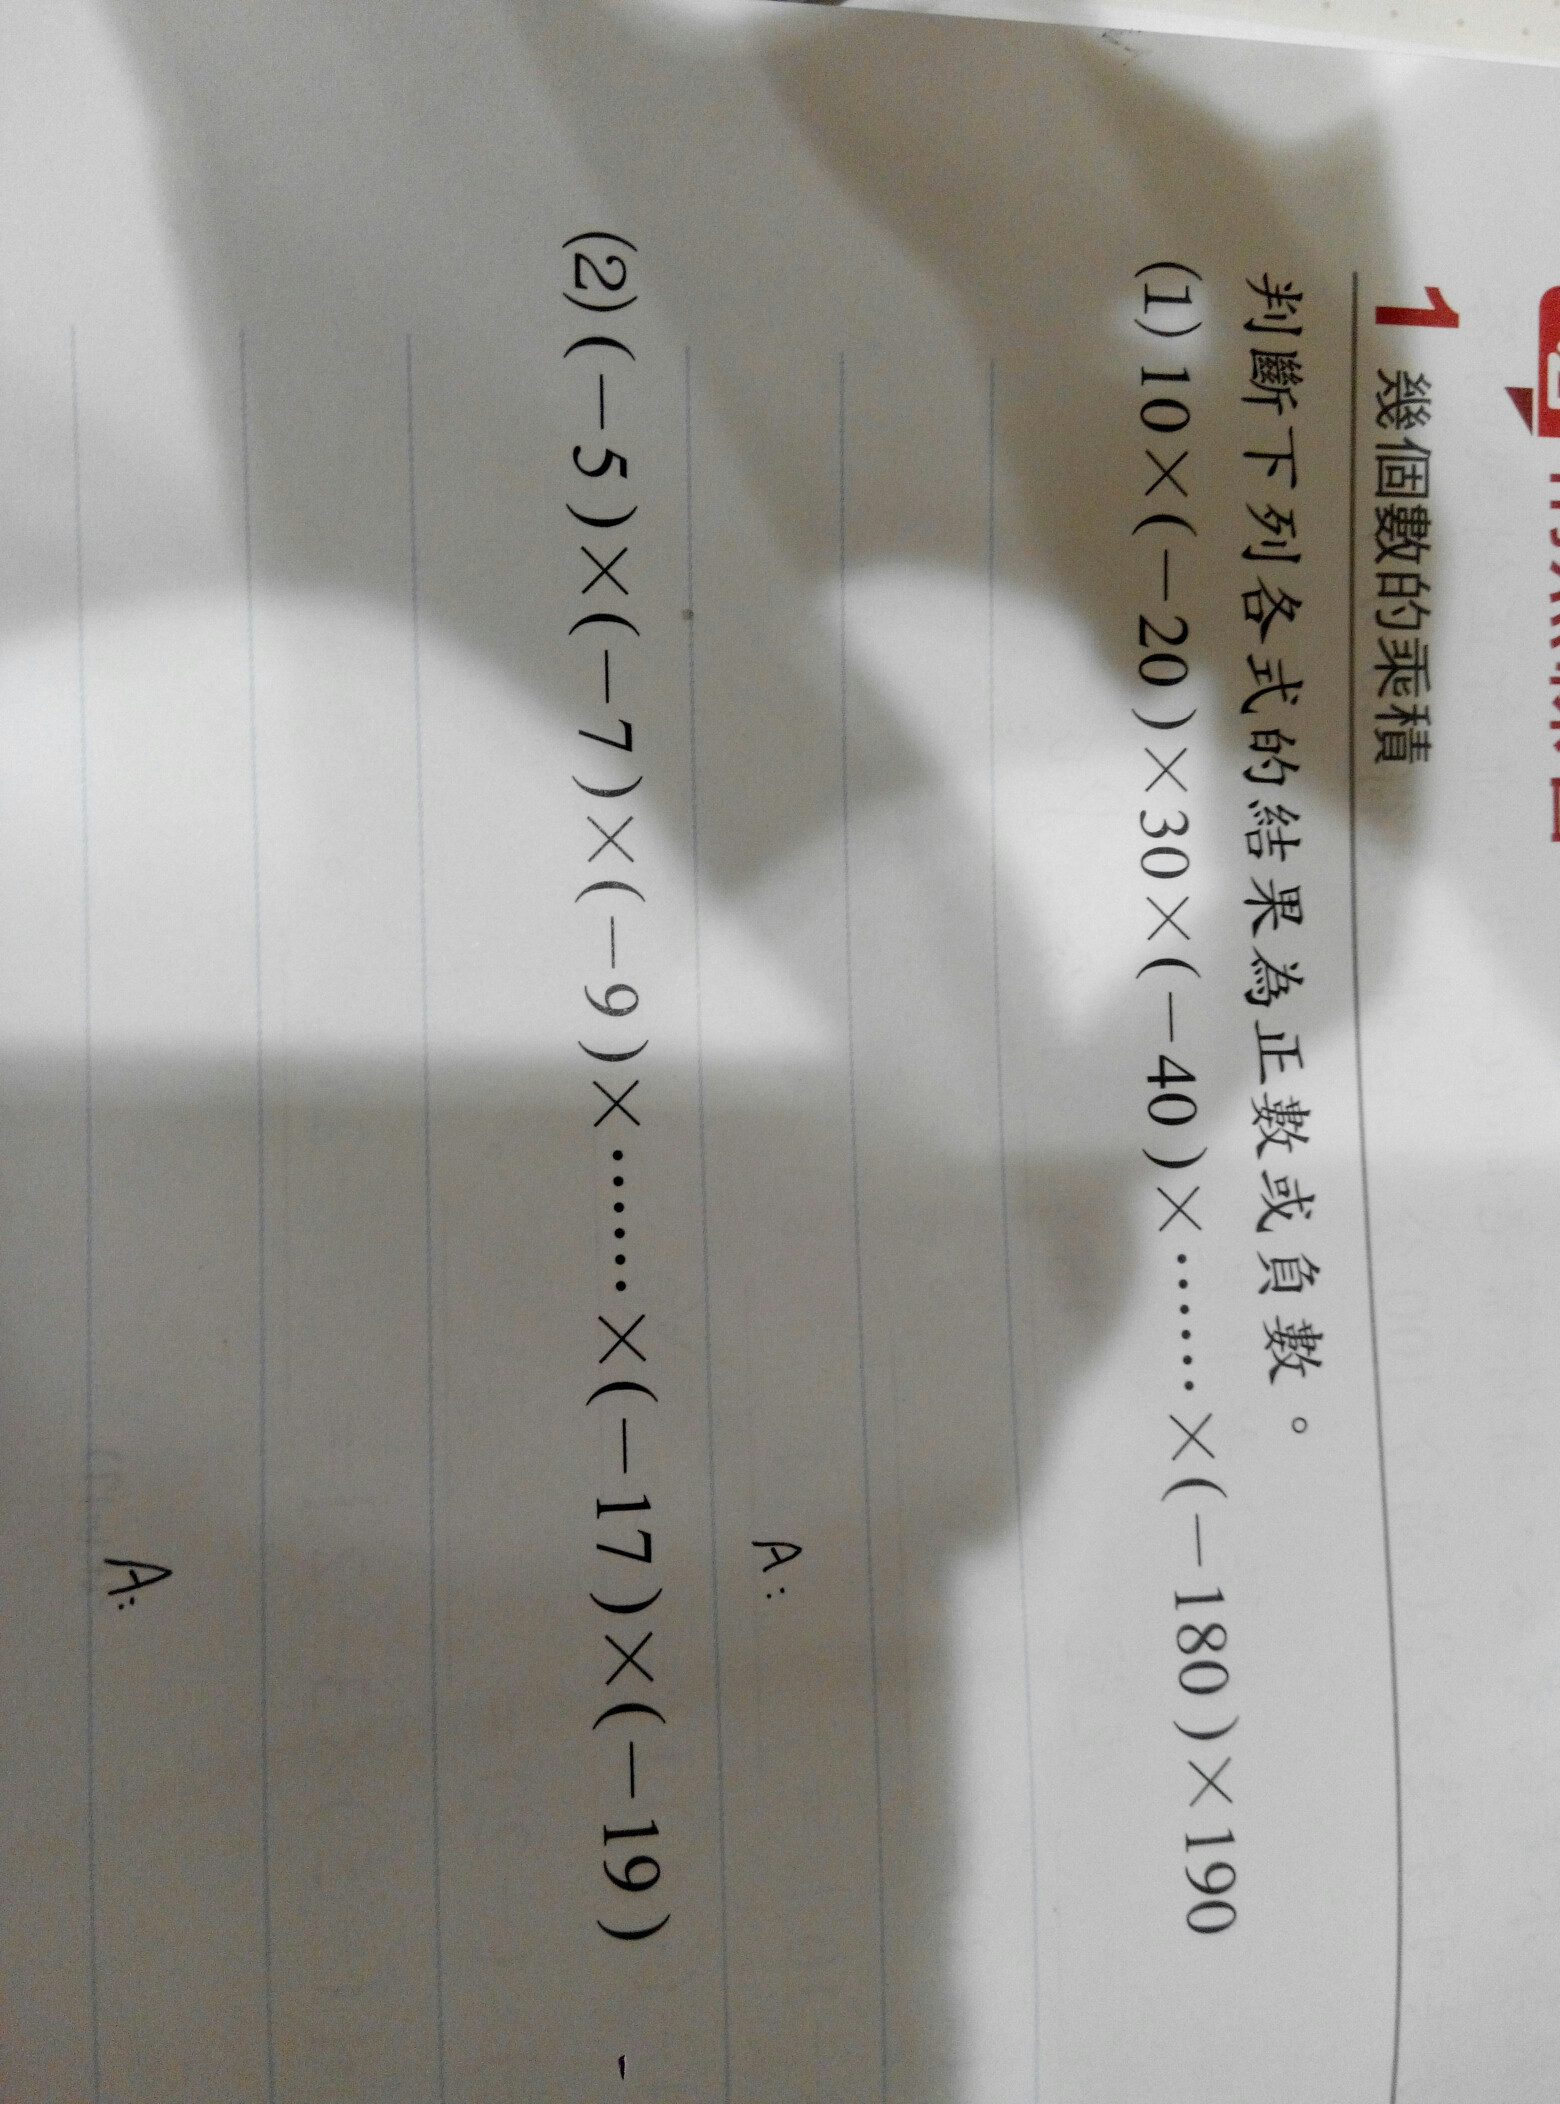 1 幾個數的乘積
判斷下列各式的結果為正數或負數。
(1) 10×(-20)×30×(-40)×⋯⋯×(-180)×190
A:
(2) (-5)×(-7)×(-9)×⋯⋯×(-17)×(-19)
A: